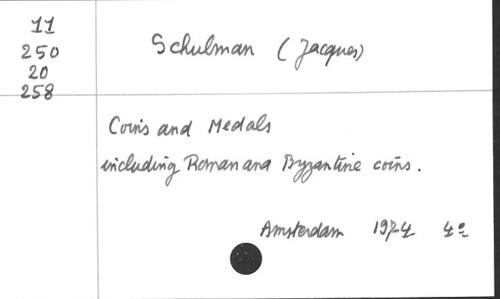 11
250
20
258
Schulman (Jacques)
Coins and Medals
including Roman and Byzantine coins.
Amsterdam 1974 4º